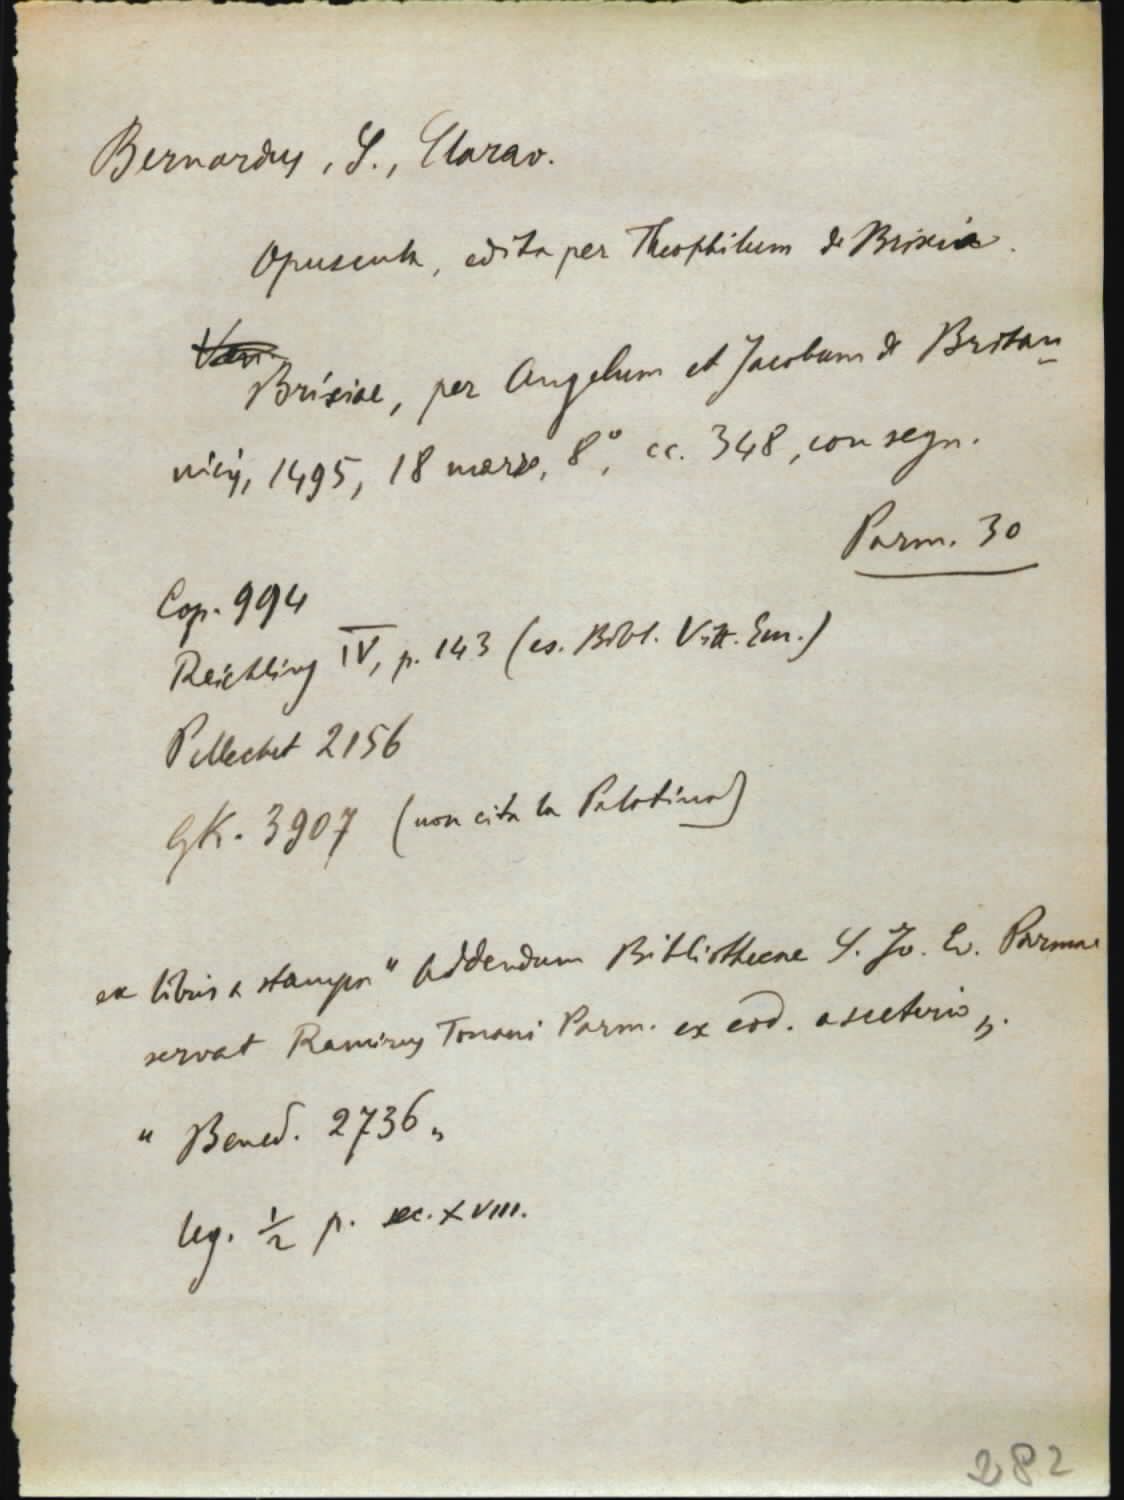 Bernardus, S., Clarav.
Opuscula, edita per Theophilum de Brixia.
Ven.
Brixiae, per Angelum et Jacobum de Britan
nicis, 1495, 18 marzo, 8°, cc. 348, con segn.
Parm. 30
Cop. 994
Reichling IV, p. 143 (es. Bibl. Vitt. Em.)
Pellechet 2156
GK. 3907 (non cita la Palatina)
ex libris a stampa " Addendum Bibliothecae S. Jo. Ev. Parmae
servat Ramirus Tonani Parm. ex eod. asceterio „.
" Bened. 2736 „
leg. ½ p. sec. XVIII.
282